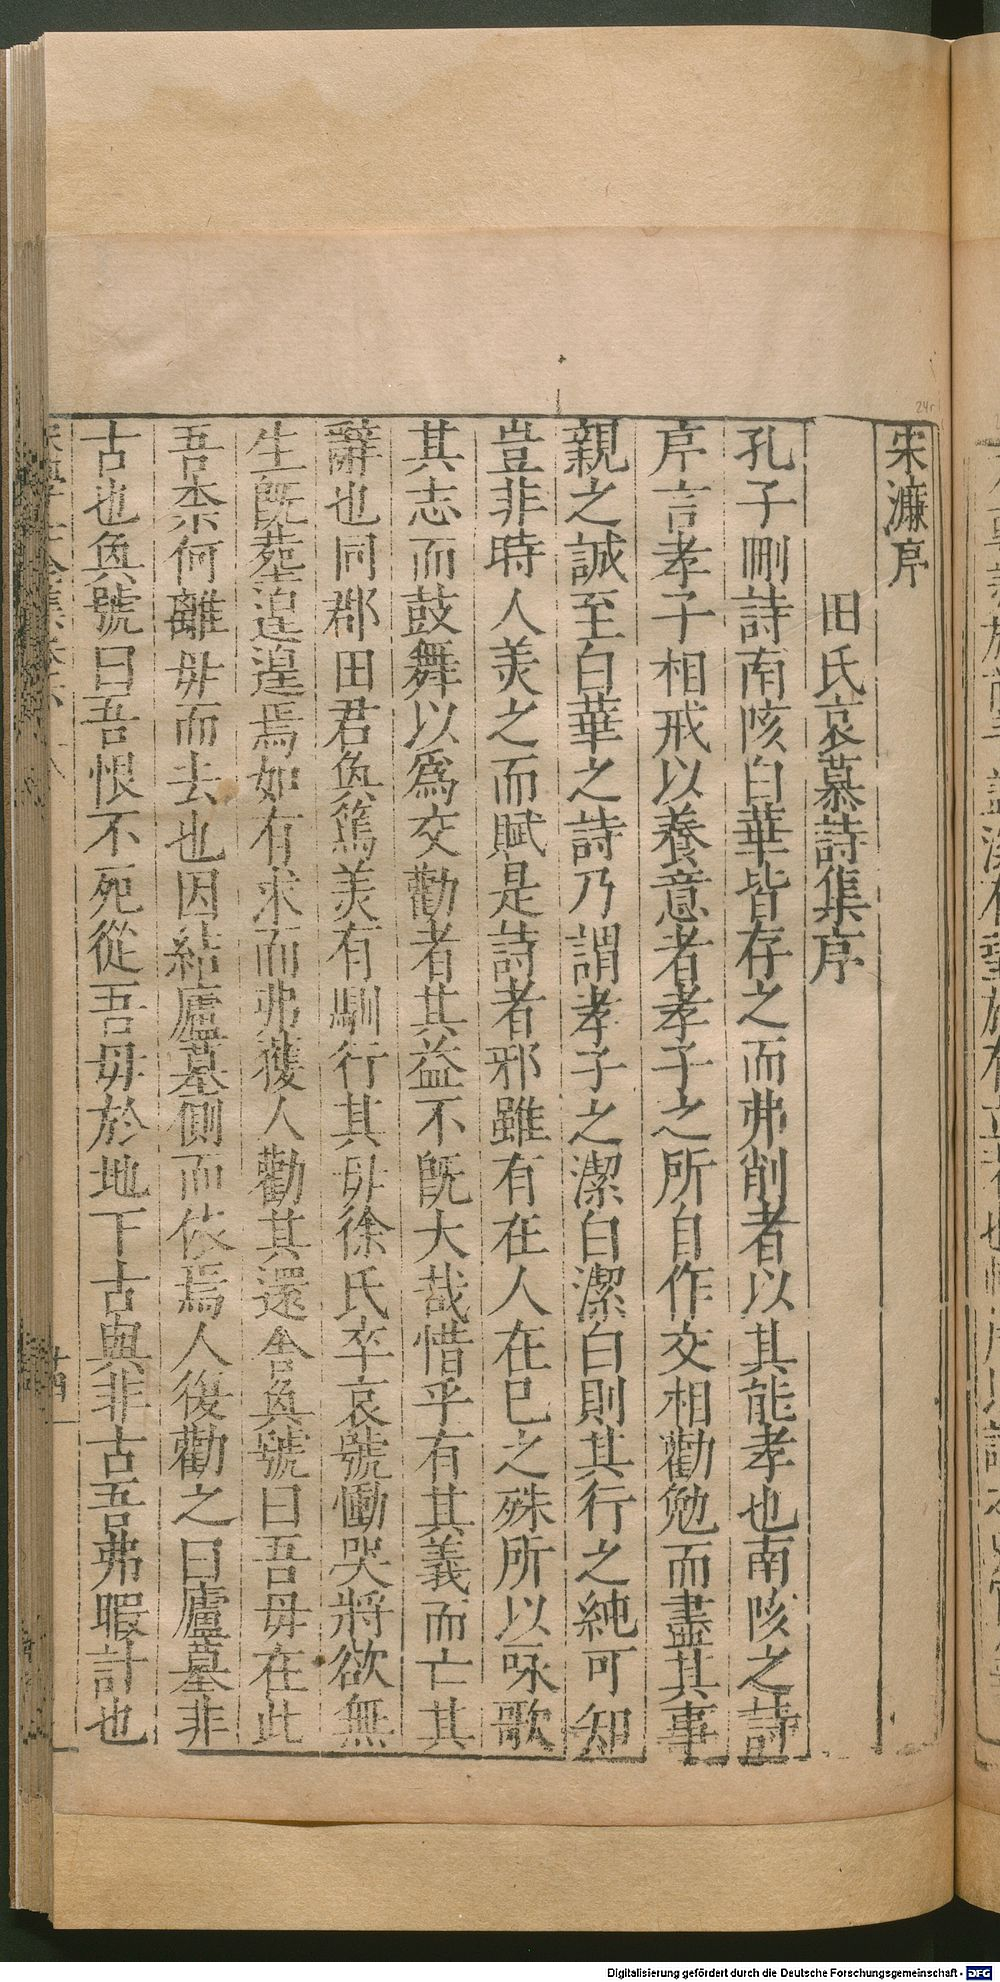 宋濂序
田氏哀慕詩集序
孔子刪詩南陔白華皆存之而弗削者以其能孝也南陔之詩
序言孝子相戒以養意者孝子之所自作交相勸勉而盡其事
親之誠至白華之詩乃謂孝子之潔白潔白則其行之純可知
豈非時人羙之而賦是詩者邪雖有在人在巳之殊所以咏歌
其志而鼓舞以爲交勸者其益不旣大哉惜乎有其義而亡其
辭也同郡田君奐篤羙有馴行其毋徐氏卒哀號慟哭將欲無
生旣葬遑遑焉如有求而弗獲人勸其還舍奐號曰吾毋在此
吾柰何離毋而去也因結廬墓側而依焉人復勸之曰廬墓非
古也奐號曰吾恨不死從吾毋於地下古與非古吾弗暇計也
Digitalisierung gefördert durch die Deutsche Forschungsgemeinschaft - DFG